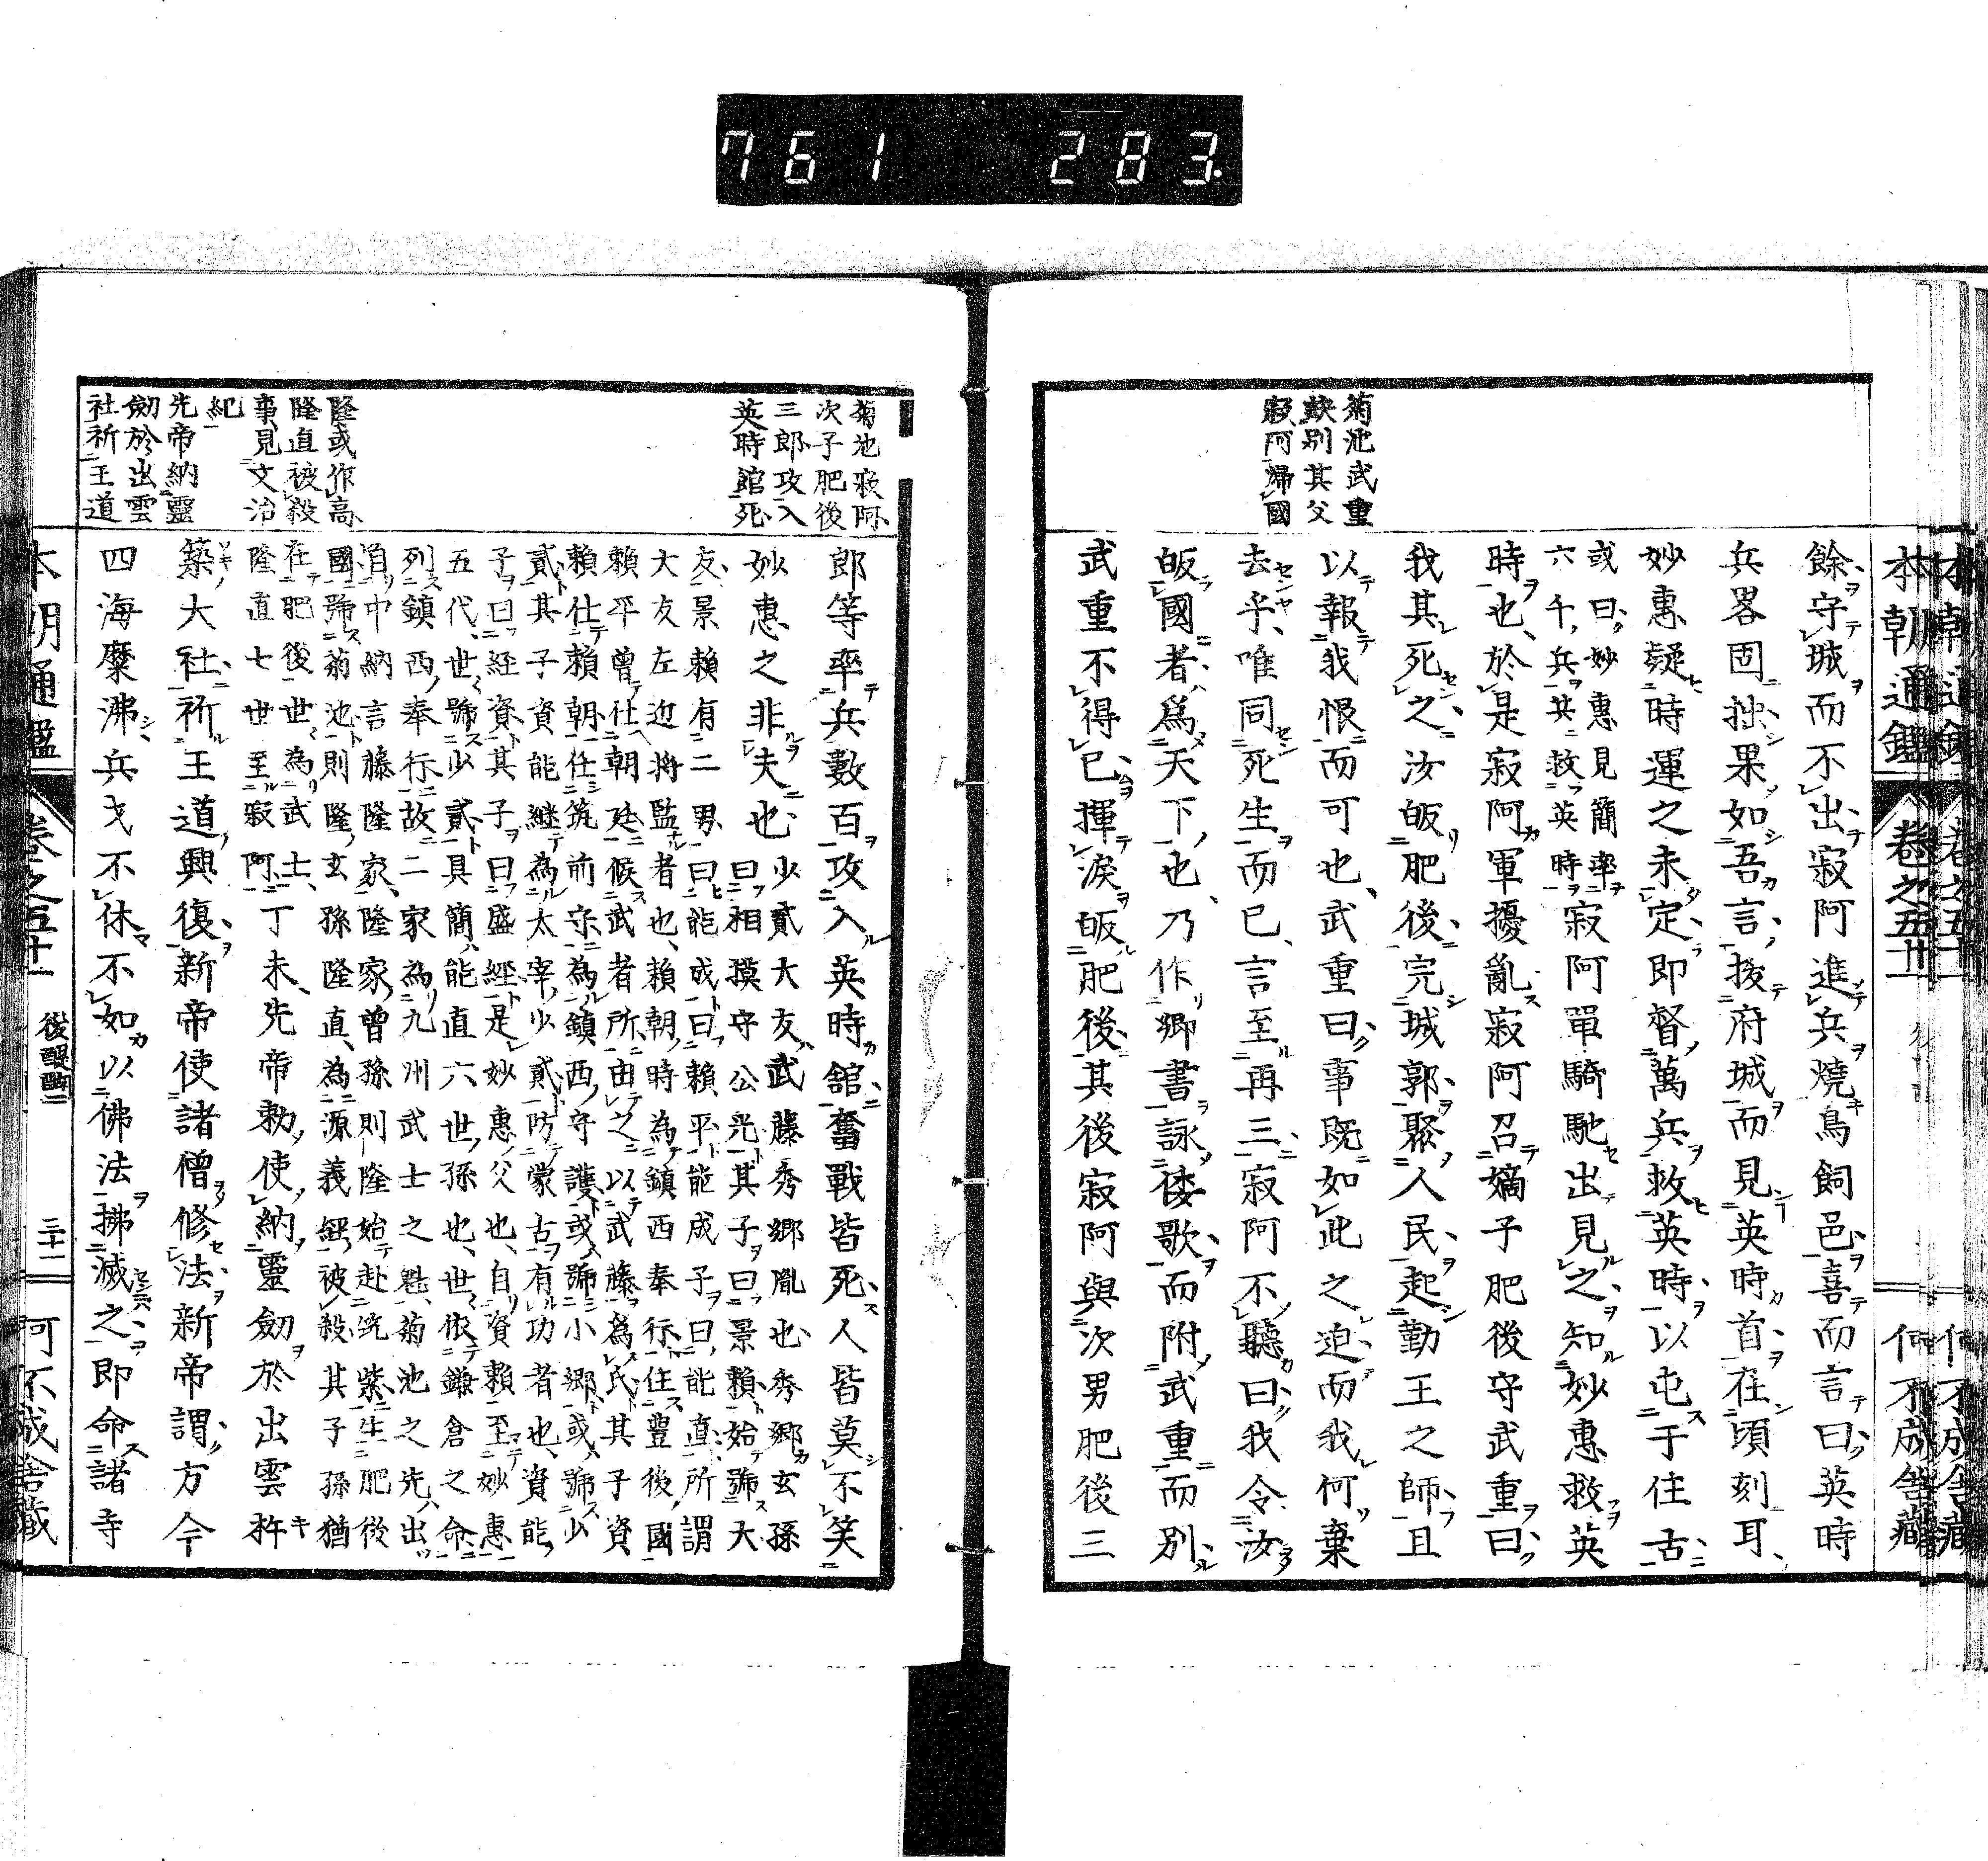 761 283.
本朝通鑑 卷之五十一 何不成舍藏
菊池武重
訣別其父
寂阿歸國
餘守城而不出寂阿進兵燒鳥飼邑喜而言曰英時
兵畧固拙果如吾言拔府城而見英時首在頃刻耳
妙惠疑時運之未定即督萬兵救英時以屯于住吉
或曰妙惠見簡率
六千兵共救英時
寂阿單騎馳出見之知妙惠救英
時也於是寂阿軍擾亂寂阿召嫡子肥後守武重曰
我其死之汝皈肥後完城郭聚人民起勤王之師且
以報我恨而可也武重曰事既如此之迫而我何棄
去乎唯同死生而已言至再三寂阿不聽曰我令汝
皈國者爲天下也乃作鄉書詠倭歌而附武重而別
武重不得已揮淚皈肥後其後寂阿與次男肥後三
菊池寂阿
次子肥後
三郎攻入
英時館死
隆或作高
隆直被殺
事見文治
紀
先帝納靈
劒於出雲
社祈王道
郎等率兵數百攻入英時舘奮戰皆死人皆莫不笑
妙惠之非夫也
少貳大友武藤秀郷胤也秀郷玄孫
曰相摸守公光其子曰景賴始號大
友景賴有二男曰能成曰賴平能成子曰能直所謂
大友左近将監者也賴朝時為鎮西奉行住豊後國
賴平曾仕朝廷候武者所由之以武藤為氏其子資
賴仕賴朝任筑前守為鎮西守護或號小郷或號少
貳其子資能継為太宰少貳防蒙古有功者也資能
子曰経資其子曰盛經是妙惠父也自資賴至妙惠
五代世號少貳具簡能直六世孫也世依鎌倉之命
列鎮西奉行故二家為九州武士之魁菊池之先出
自中納言藤隆家隆家曾孫則隆始赴筑紫生肥後
國號菊池則隆玄孫隆直為源義經被殺其子孫猶
在肥後世為武士
隆直七世至寂阿
丁未先帝勅使納靈劒於出雲杵
築大社祈王道興復新帝使諸僧修法新帝謂方今
四海糜沸兵戈不休不如以佛法拂滅之即命諸寺
本朝通鑑 卷之五十一 後醍醐二 三十二 何不成舍藏